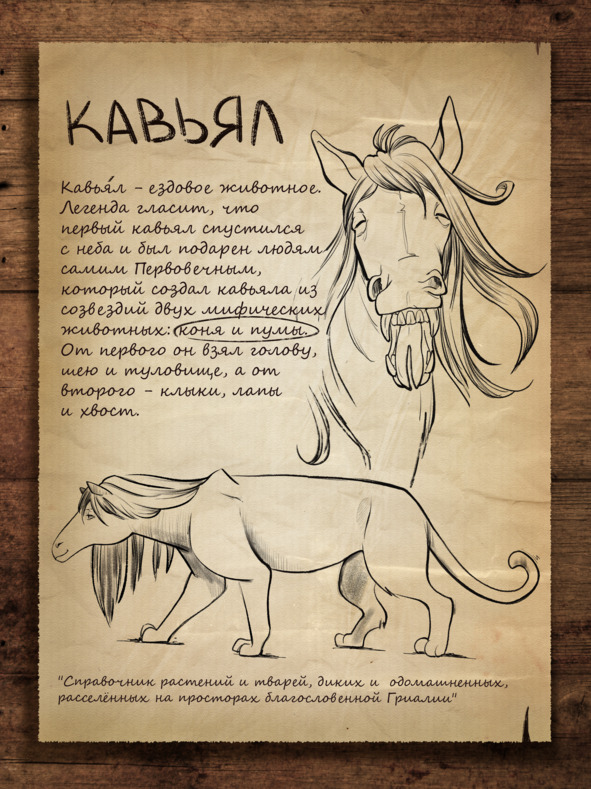 КАВЬЯЛ
Кавья́л – ездовое животное.
Легенда гласит, что
первый кавьял спустился
с неба и был подарен людям
самим Первовечным,
который создал кавьяла из
созвездий двух мифических
животных: коня и пумы.
От первого он взял голову,
шею и туловище, а от
второго – клыки, лапы
и хвост.
"Справочник растений и тварей, диких и одомашненных,
расселённых на просторах благословенной Гриалии"